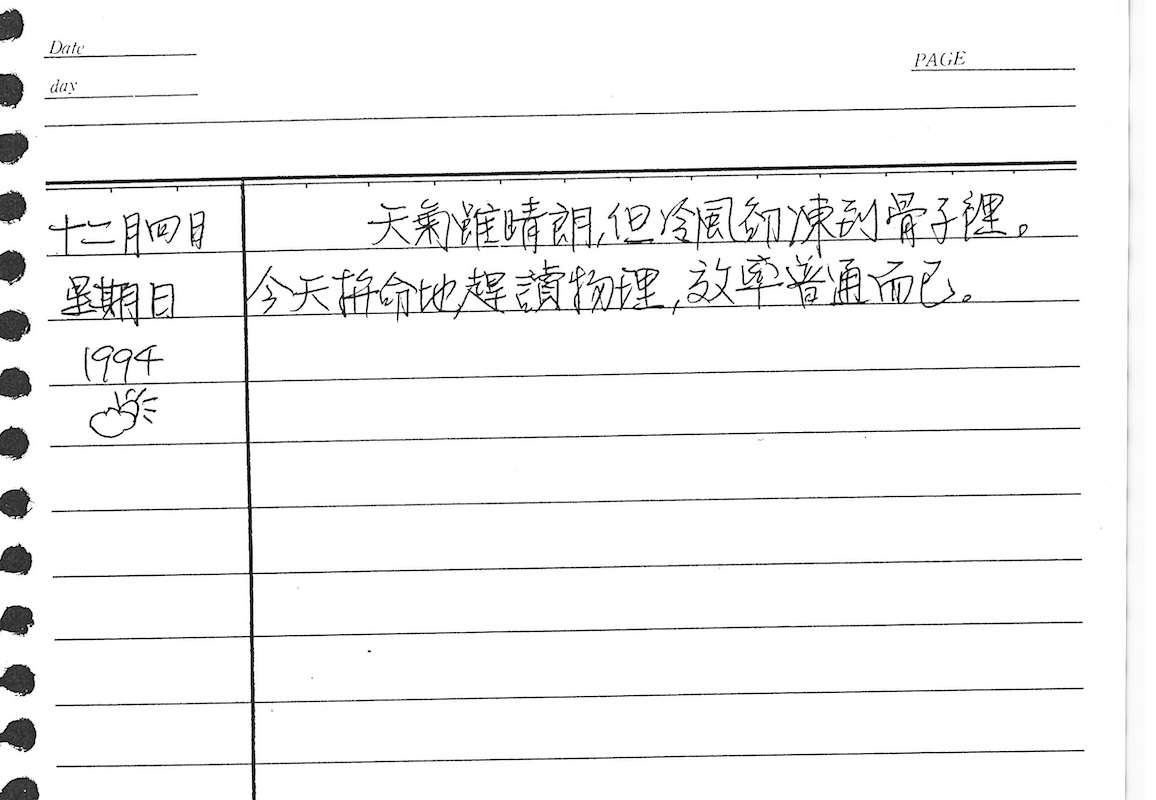 Date
day
PAGE
十二月四日
星期日
1994
天氣雖晴朗,但冷風仍凍到骨子裡。
今天拚命地趕讀物理,效率普通而已。